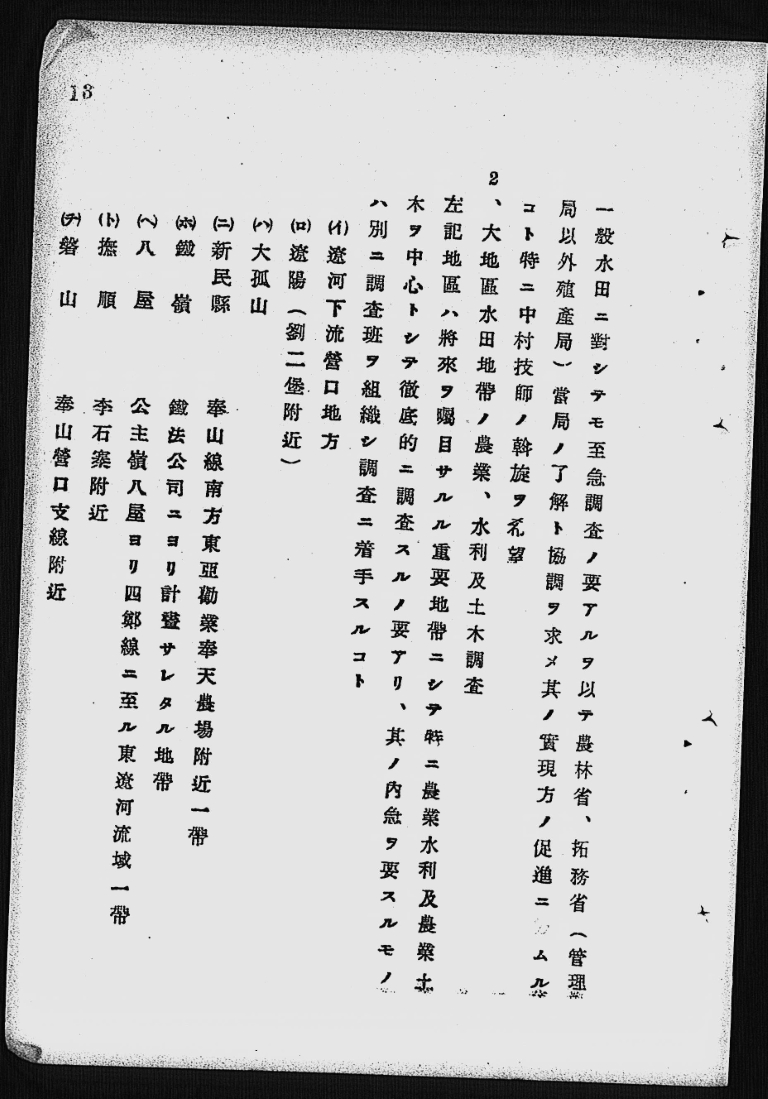 13
一般水田ニ對シテモ至急調査ノ要アルヲ以テ農林省、拓務省(管理
局以外殖產局)當局ノ了解ト協調ヲ求メ其ノ實現方ノ促進ニムル
コト特ニ中村技師ノ斡旋ヲ希望
2、大地區水田地帶ノ農業、水利及土木調査
左記地區ハ將來ヲ囑目サルル重要地帶ニシテ特ニ農業水利及農業土
木ヲ中心トシテ徹底的ニ調査スルノ要アリ、其ノ內急ヲ要スルモノ
ハ別ニ調査班ヲ組織シ調査ニ着手スルコト
(イ)遼河下流營口地方
(ロ)遼陽(劉二堡附近)
(ハ)大孤山
(ニ)新民縣 奉山線南方東亞勸業奉天農場附近一帶
(ホ)鐵嶺 鐵法公司ニヨリ計畫サレタル地帶
(ヘ)八屋 公主嶺八屋ヨリ四鄭線ニ至ル東遼河流域一帶
(ト)撫順 李石寨附近
(チ)磐山 奉山營口支線附近